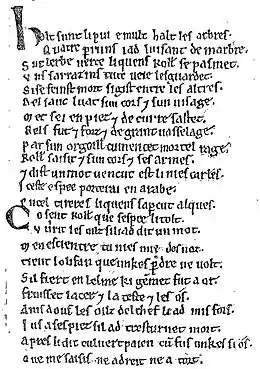 Halt sunt li pui e mult halt les arbres.
Quatre perruns i ad luisant de marbre.
Sur l erbe verte li quens Roll se pasmet.
Uns sarrazins tute veie lesguardet.
Si se feinst mort si gist entre les altres.
Del sanc luat sun cors ⁊ sun uisage.
Met sei en piez ⁊ de curre sastet.
Bels fut ⁊ forz ⁊ de grant uasselage.
Par sun orgoill cumencet mortel rage.
Roll saisit ⁊ sun cors ⁊ ses armes.
⁊ dist un mot uencut est li nies carles.
Iceste espee porterai en arabe.
En cel tireres li quens saperçut alques.
Co sent Roll que sespee li tolt.
Uurit les oilz si li ad dit un mot.
Men escientre tu nies mie des noz.
Tient lolifan que unkes perdre ne uolt.
Sil fiert en lelme ki gemet fut a or.
Fruisset lacer ⁊ la teste ⁊ les os.
Amsdous les oilz del chef li ad mis fors.
Jus a ses piez si lad tresturnet mort.
Apres li dit culuert paien cum fus unkes si os.
Que me saisis ne a dreit ne a tort.